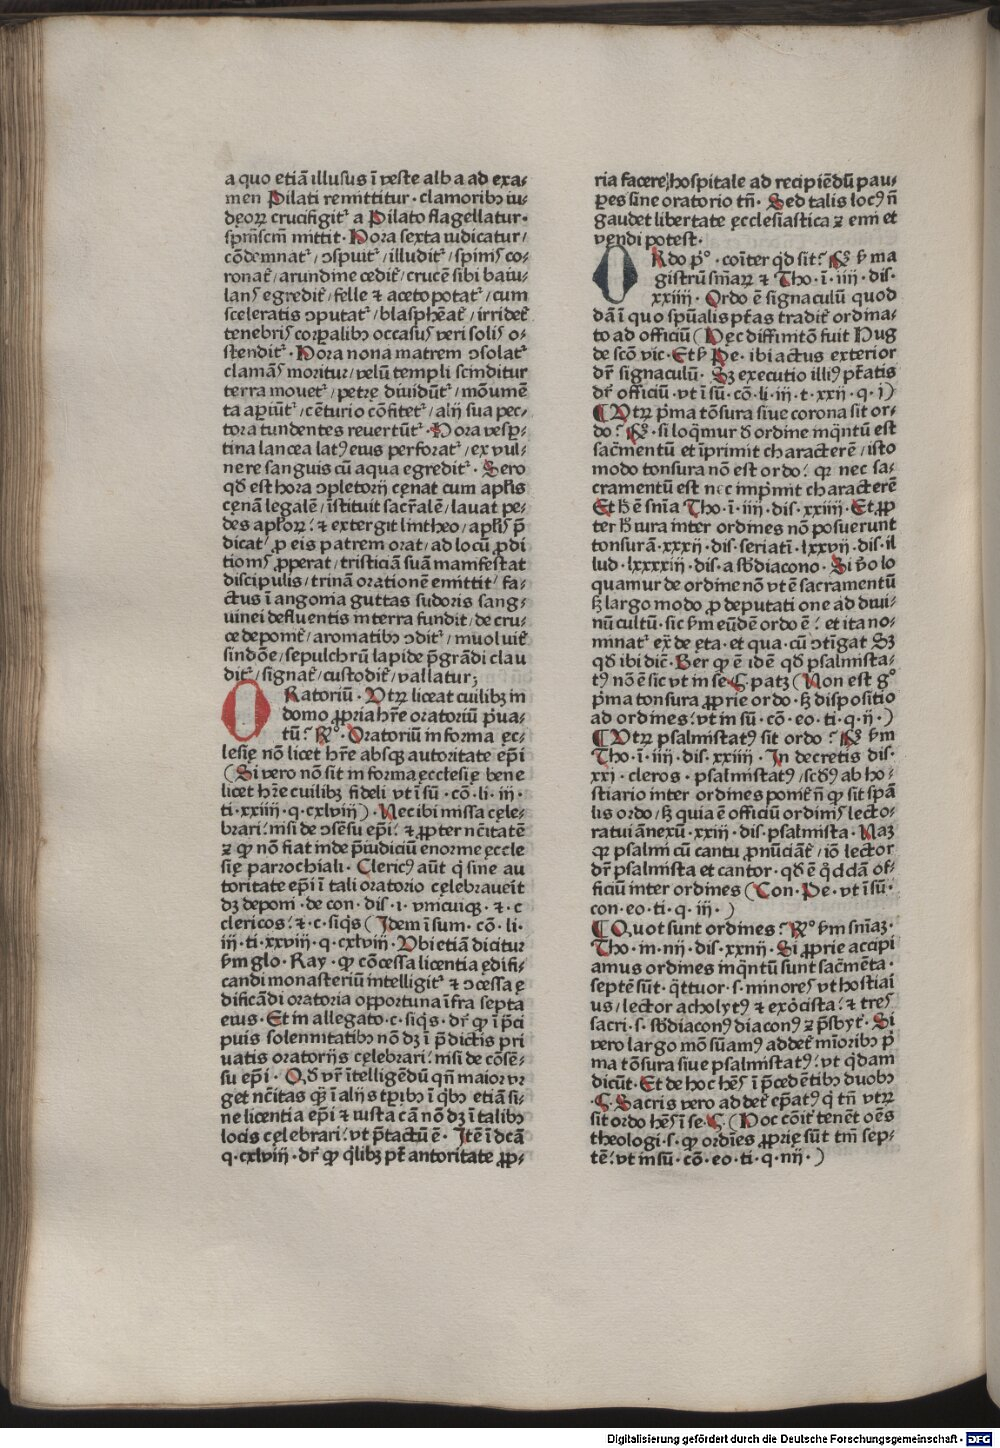 a quo etiā illusus ī veste alba ad exa⸗
men Pilati remittitur · clamoribꝫ iu⸗
dęoꝝ crucifigit᷑ a Pilato flagellatur ·
mittit · Hora sexta iudicatur /
cōdemnat᷑ / ↄspuit᷑ / illudit᷑ / spinis co⸗
ronat᷑ / arundine cedit᷑ / crucē sibi baiu⸗
lans egredit᷑ / felle ⁊ aceto potat᷑ / cum
sceleratis ↄputat᷑ / blasphēat᷑ / irridet᷑
tenebris corꝑalibꝫ occasus veri solis o⸗
stendit᷑ · Hora nona matrem ↄsolat᷑
clamans moritur / velū templi scinditur
terra movet᷑ / petrę dividūt᷑ / mōumē
ta aꝑiūt᷑ / cēturio cōfitet᷑ / alij sua pec⸗
tora tundentes revertūt᷑ · Hora vesꝑ⸗
tina lancea latꝰ eius perforat᷑ / ex vul⸗
nere sanguis cū aqua egredit᷑ · Sero
qd̄ est hora ↄpletorij cęnat cum apl̄is
cęnā legalē / īstituit sacr̄alē / lauat pe⸗
des apl̄oꝝ · ⁊ extergit lintheo / apl̄is p̄
dicat / ꝓ eis patrem orat / ad locū ꝓdi
tionis ꝓperat / tristiciā suā manifestat
discipulis / trinā orationē emittit / fa⸗
ctus ī angonia guttas sudoris sang⸗
uinei defluentis in terra fundit / de cru⸗
ce deponit᷑ / aromatibꝫ ↄdit᷑ / inuoluit᷑
sindōe / sepulchrū lapide p̄grādi clau
dit᷑ / signat᷑ / custodit᷑ / vallatur ;
ORatoriū · Utꝝ liceat cuilibꝫ in
domo ꝓpria hr̄e oratoriū p̄ua⸗
tū ? R̊ · Oratoriū in forma ęc⸗
lesię nō licet hr̄e absqꝫ autoritate ep̄i
( Si vero nō sit in forma ęcclesię bene
licet hr̄e cuilibꝫ fideli vt ī sū · cō · li · iij ·
ti · xxiiij · q · cxlviij ) · Nec ibi missa cęle⸗
brari · nisi de ↄsēsu ep̄i · ⁊ ꝓpter nc̄itatē
⁊ qꝫ nō fiat inde p̄iudiciū enorme ęccle
się parrochiali · Clericꝰ aūt q̇ sine au
toritate ep̄i ī tali oratorio cęlebraueīt
dꝫ deponi · de con · dis · i · vnicuiqꝫ · ⁊ · c
clericos · ⁊ · c · siq̄s ( Idem ī sum · cō · li ·
iij · ti · xxviij · q · cxlviij · Ubi etiā dicitur
ẜm glo · Ray · qꝫ cōcessa licentia ędifi⸗
candi monasteriū intelligit᷑ ⁊ ↄcessa ę
dificādi oratoria opportuna īfra septa
eius · Et in allegato · c · siq̄s · dr̄ qꝫ ī p̄ci
puis solennitatibꝫ nō dꝫ ī p̄dictis pri
uatis oratorijs cęlebrari · nisi de cōsē⸗
su ep̄i · Qd̄ vr̄ ītelligēdū qn̄ maior vr
get nc̄itas qꝫ ī alijs tp̄ibꝫ ī q̇bꝫ etiā si⸗
ne licentia ep̄i ⁊ iusta cā nō dꝫ ī talibꝫ
locis cęlebrari · vt p̄tactū ē · Itē ī dc̄ā
q · cxlviij · dr̄ qꝫ q̇libꝫ pt̄ antoritate ꝓp⸗
ria facere hospitale ad recipiēdū pau⸗
ꝑes sine oratorio tn̄ · Sed talis locꝰ n̄
gaudet libertate ęcclesiastica ⁊ emi et
vendi potest ·
ORdo p̊ · coīter qd̄ sit ? R̊ ẜm ma
gistrū sn̄iaꝝ ⁊ Tho · ī · iiij · dis ·
xxiiij · Ordo ē signaculū quod
dā ī quo spūalis pt̄as tradit᷑ ordina⸗
to ad officiū ( Hęc diffinitō fuit Hug
de scō vic · Et ẜ Pe · ibi actus exterior
dr̄ signaculū · Sꝫ executio illiꝰ pt̄atis
dr̄ officiū · vt ī sū · cō · li · iij · t · xxij · q · i )
¶ Utꝝ p̄ma tōsura siue corona sit or⸗
do ? R̊ · si loq̇mur d̄ ordine inq̇ntū est
sacm̄entū et īprimit characterē / isto
modo tonsura nō est ordo · qꝛ nec sa⸗
cramentū est nec imp̄mit characterē
Et h̄ ē sn̄ia Tho · ī · iiij · dis · xxiiij · Et ꝓp
ter h̄ iura inter ordines nō posuerunt
tonsurā · xxxij · dis · seriatī · lxxvij · dis · il
lud · lxxxxiij · dis · a sb̄diacono · Si v̊o lo
quamur de ordine nō vt ē sacramentū
ẜ largo modo ꝓ deputatione ad diui⸗
nū cultū · sic ẜm eūdē ordo ē · et ita no⸗
minat᷑ ex̄ de ęta · et qua · cū ↄtīgat Sꝫ
qd̄ ibi diē · Ber qꝫ ē idē qd̄ psalmista⸗
tꝰ nō ē sic vt in se · C · patꝫ ( Non est g̊
p̄ma tonsura ꝓprie ordo · ẜ dispositio
ad ordines · vt in sū · cō · eo · ti · q · ij · )
¶ Utꝝ psalmistatꝰ sit ordo ? R̊ ẜm
Tho · ī · iiij · dis · xxiiij · In decretis dis ·
xxj · cleros · psalmistatꝰ / scd̄s ab ho⸗
stiario inter ordines ponit᷑ n̄ qꝫ sit spā
lis ordo / ẜ quia ē officiū ordinis lecto⸗
ratui ānexū · xxiij · dis · psalmista · Naꝫ
qꝛ psalmi cū cantu ꝓnūciāt᷑ / iō lector
dr̄ psalmista et cantor · qd̄ ē q̇ddā of⸗
ficiū inter ordines ( Con · Pe · vt ī sū ·
con · eo · ti · q · iij · )
¶ Quot sunt ordines ? R̊ ẜm sn̄iaꝫ ·
Tho · in · iiij · dis · xxiiij · Si ꝓprie accipi
amus ordines inq̇ntū sunt sacm̄enta ·
septē sūt · q̇ttuor · s · minores vt hostiai
us / lector acholytꝰ ⁊ exorcista · ⁊ tres
sacri · s · sb̄diaconꝰ diaconꝰ ⁊ p̄sbyt᷑ · Si
vero largo mō sūamꝰ addet᷑ mīoribꝫ p̄
ma tōsura siue psalmistatꝰ · vt q̇dam
dicūt · Et de hoc hēs ī p̄cedētibꝫ duobꝫ
· C · Sacris vero addet᷑ ep̄atꝰ q̇ tn̄ vtꝝ
sit ordo hēs ī se · C · ( Hoc cōit᷑ tenēt oēs
theologi · s · qꝫ ordīes ꝓprię sūt tm̄ sep⸗
tē · vt in sū · cō · eo · ti · q · iiij · )
Digitalisierung gefördert durch die Deutsche Forschungsgemeinschaft · DFG